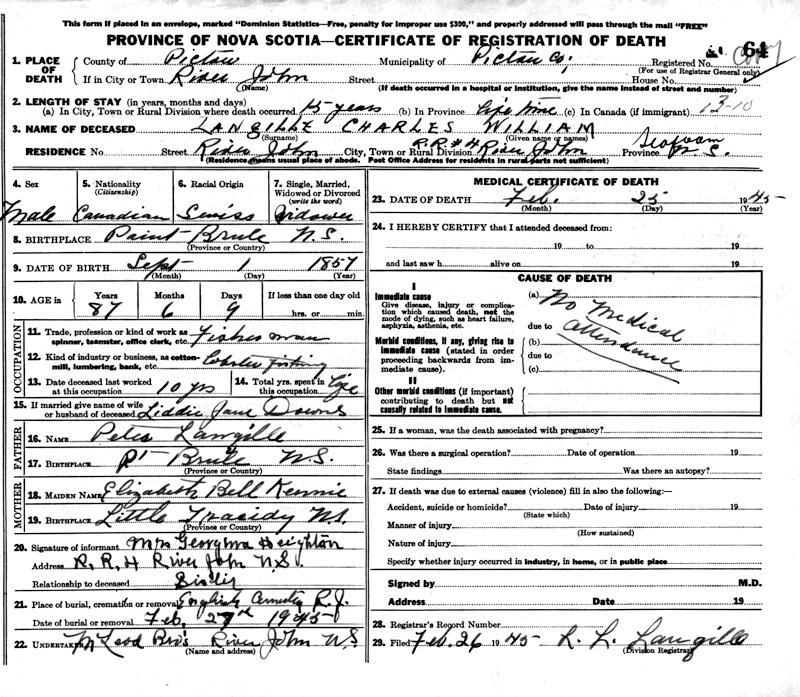 This form if placed in an envelope, marked "Dominion Statistics—Free, penalty for improper use $300," and properly addressed will pass through the mail "FREE"
PROVINCE OF NOVA SCOTIA—CERTIFICATE OF REGISTRATION OF DEATH
64
Copy
1. PLACE OF DEATH
County of Pictou Municipality of Pictou Co; Registered No.
(For use of Registrar General only)
If in City or Town River John Street House No.
(Name) (If death occurred in a hospital or institution, give the name instead of street and number)
2. LENGTH OF STAY (in years, months and days)
(a) In City, Town or Rural Division where death occurred 15 years (b) In Province Life time (c) In Canada (if immigrant) 13-10
3. NAME OF DECEASED LANGILLE CHARLES WILLIAM
(Surname) (Given name or names)
RESIDENCE No. Street River John City, Town or Rural Division R.R #4 River John Province N.S.
(Residence means usual place of abode. Post Office Address for residents in rural parts not sufficient)
4. Sex Male
5. Nationality (Citizenship) Canadian
6. Racial Origin Swiss
7. Single, Married, Widowed or Divorced (write the word) Widower
8. BIRTHPLACE Point Brule N.S.
(Province or Country)
9. DATE OF BIRTH Sept 1 1857
(Month) (Day) (Year)
10. AGE in Years 87 Months 6 Days 9 If less than one day old hrs. or min.
OCCUPATION
11. Trade, profession or kind of work as spinner, teamster, office clerk, etc. Fisherman
12. Kind of industry or business, as cotton-mill, lumbering, bank, etc. Lobster fishing
13. Date deceased last worked at this occupation 10 yrs
14. Total yrs. spent in this occupation Life
15. If married give name of wife or husband of deceased Liddie Jane Downs
FATHER
16. NAME Peter Langille
17. BIRTHPLACE Pt Brule N.S.
(Province or Country)
MOTHER
18. MAIDEN NAME Elizabeth Bell Rennie
19. BIRTHPLACE Little N.S.
(Province or Country)
20. Signature of informant Mrs Georgina Heighton
Address R. R. 4 River John N.S.
Relationship to deceased Sister
21. Place of burial, cremation or removal English Cemetry R.J.
Date of burial or removal Feb. 27 1945
22. UNDERTAKER McLeod Bros River John N.S
(Name and address)
MEDICAL CERTIFICATE OF DEATH
23. DATE OF DEATH Feb. 25 1945
(Month) (Day) (Year)
24. I HEREBY CERTIFY that I attended deceased from:
19 to 19
and last saw h alive on 19
CAUSE OF DEATH
I
Immediate cause
Give disease, injury or complication which caused death, not the mode of dying, such as heart failure, asphyxia, asthenia, etc.
(a) No Medical Attendance
due to
Morbid conditions, if any, giving rise to immediate cause (stated in order proceeding backwards from immediate cause).
(b)
due to
(c)
II
Other morbid conditions (if important) contributing to death but not causally related to immediate cause.
25. If a woman, was the death associated with pregnancy?
26. Was there a surgical operation? Date of operation 19
State findings Was there an autopsy?
27. If death was due to external causes (violence) fill in also the following:—
Accident, suicide or homicide? Date of injury 19
(State which)
Manner of injury
(How sustained)
Nature of injury
Specify whether injury occurred in industry, in home, or in public place
Signed by M.D.
Address Date 19
28. Registrar's Record Number
29. Filed Feb. 26 1945 L. L. Langille
(Division Registrar)